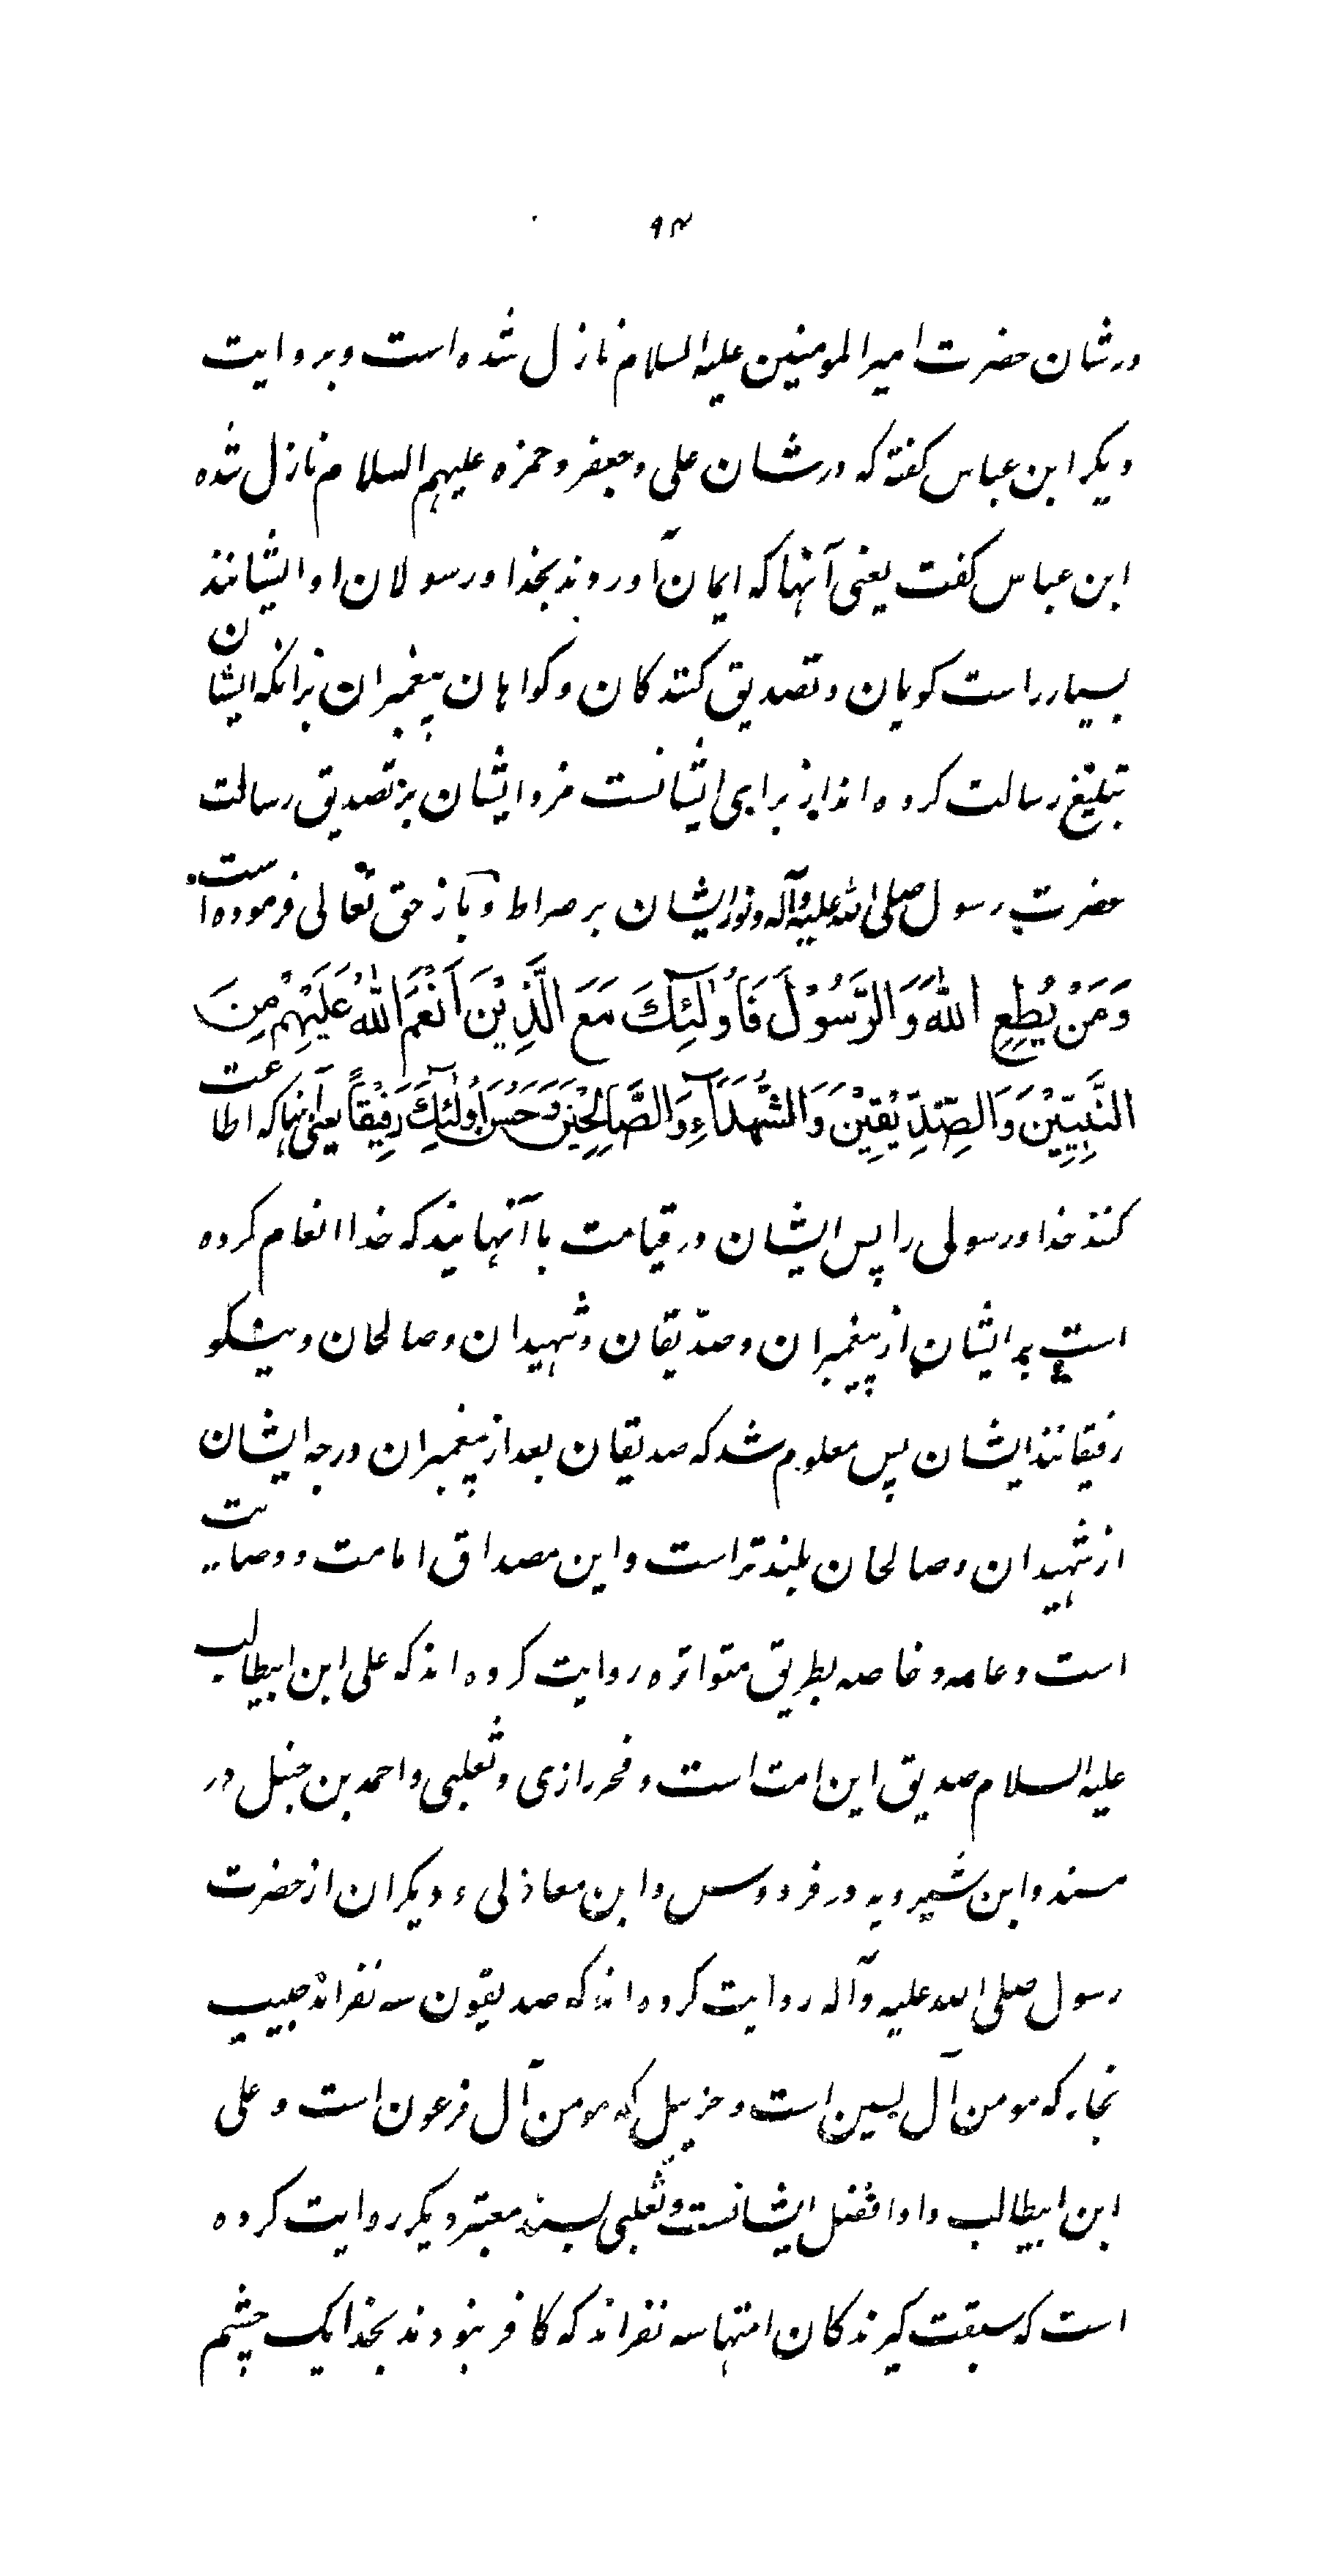 ۹۴
درشان حضرت امیرالمومنین علیه السلام نازل شده است و بروایت
دیکر ابن عباس کفته که درشان علی و جعفر و حمزه علیهم السلام نازل شده
ابن عباس کفت یعنی آنهاکه ایمان آوروند بخدا ورسولان او ایشانند
بسیار راست کویان و تصدیق کنندکان و کواهان پیغمبران برانکه ایشان
تبلیغ رسالت کرده اند برای ایشانست مزد ایشان بر تصدیق رسالت
حضرت رسول صلی الله علیه وآله و نور ایشان بر صراط و باز حق تعالی فرموده است
وَمَنْ يُطِعِ اللّٰهَ وَالرَّسُوْلَ فَاُولٰٓئِكَ مَعَ الَّذِيْنَ اَنْعَمَ اللّٰهُ عَلَيْهِمْ مِنَ
النَّبِيّيْنَ وَالصِّدِّيْقِيْنَ وَالشُّهَدَآءِ وَالصَّالِحِيْنَ وَحَسُنَ اُولٰٓئِكَ رَفِيْقاً یعنی آنهاکه اطاعت
کنند خدا و رسولی را پس ایشان در قیامت با آنهایند که خدا انعام کرده
است بر ایشان از پیغمبران و صدّیقان و شهیدان و صالحان و نیکو
رفیقانند ایشان پس معلوم شد که صدیقان بعد از پیغمبران درجه ایشان
از شهیدان و صالحان بلندتر است و این مصداق امامت و وصایت
است و عامه و خاصه بطریق متواتره روایت کرده اند که علی ابن ابیطالب
علیه السلام صدیق این امت است و فخر رازی و ثعلبی و احمد بن حنبل در
مسند و ابن شیرویه در فردوس و ابن معاذلی و دیکران از حضرت
رسول صلی الله علیه وآله روایت کرده اند که صدیقون سه نفراند حبیب
نجار که مومن آل یسین است و حزبیل که مومن آل فرعون است و علی
ابن ابیطالب و او افضل ایشانست و ثعلبی بسند معتبر دیکر روایت کرده
است که سبقت کیرندکان امتها سه نفراند که کافر نبودند بخدا یک چشم